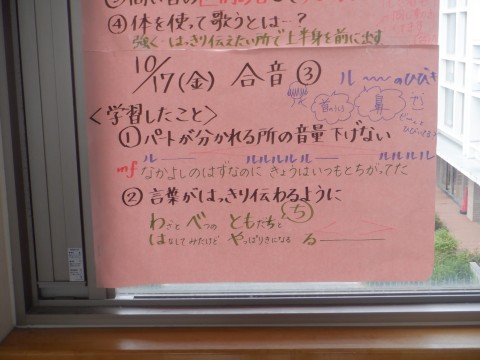 ④体を使って歌うとは…?
強く はっきり伝えたい所で上半身を前に出す
10/17(金) 合音③ ル〜〜のひびき
鼻
<学習したこと>
①パートが分かれる所の音量下げない
ル―― ルルルルル―― ルルルル
mf なかよしのはずなのに きょうはいつもとちがってた
②言葉がはっきり伝わるように
わざと べつの ともだちと ち
はなしてみたけど やっぱりきになる る――